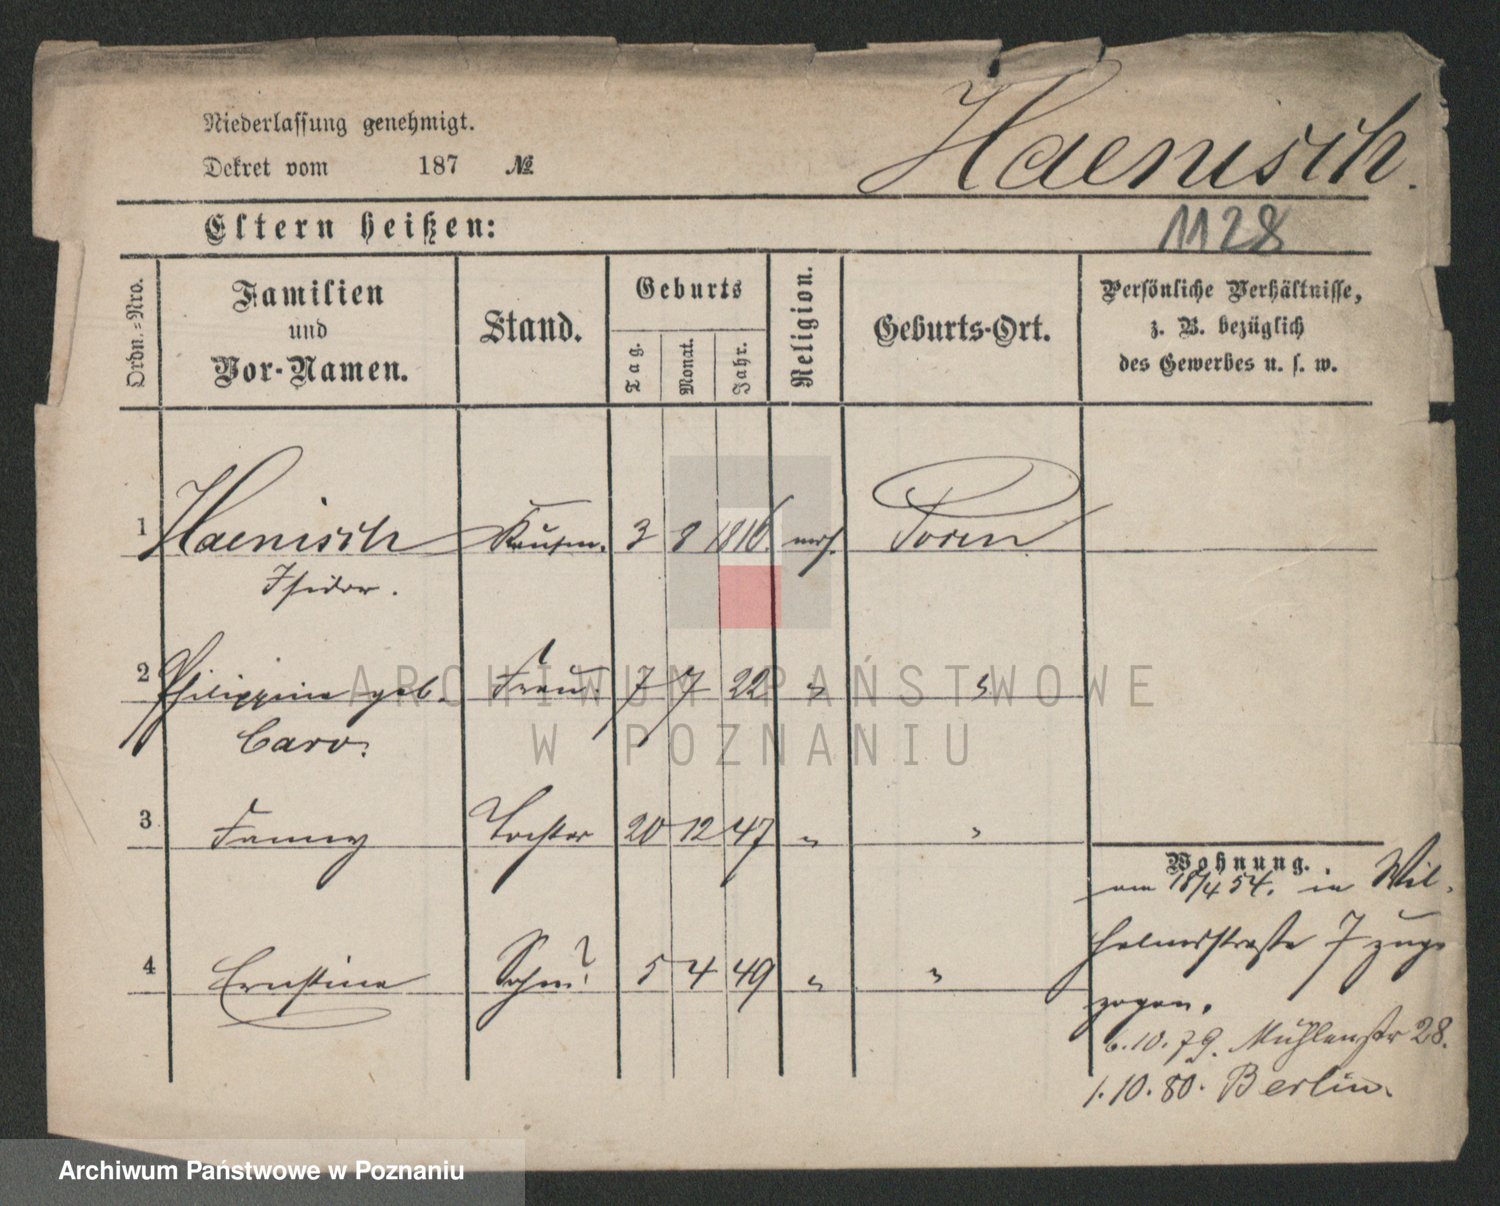 Niederlassung genehmigt.
Dekret vom 187 №
Haenisch.
1128
Eltern heißen:
Ordn.-Nro.
Familien und Vor-Namen.
Stand.
Geburts
Tag.
Monat.
Jahr.
Religion.
Geburts-Ort.
Persönliche Verhältnisse,
z. B. bezüglich
des Gewerbes u. s. w.
1 Haenisch Kaufm. 3 8 1816. mos. Posen
Isidor.
2 Philippine geb. Frau. 7 7 22 " "
Caro.
3 Fanny Tochter 20 12 47 " "
4 Ernstine Sohn? 5 4 49 " "
Wohnung.
am 18/4 54. in Wil-
helmsstraße 7 zuge
zogen.
6.10.79. Mühlenstr 28.
1.10.80. Berlin.
ARCHIWUM PAŃSTWOWE
W POZNANIU
Archiwum Państwowe w Poznaniu